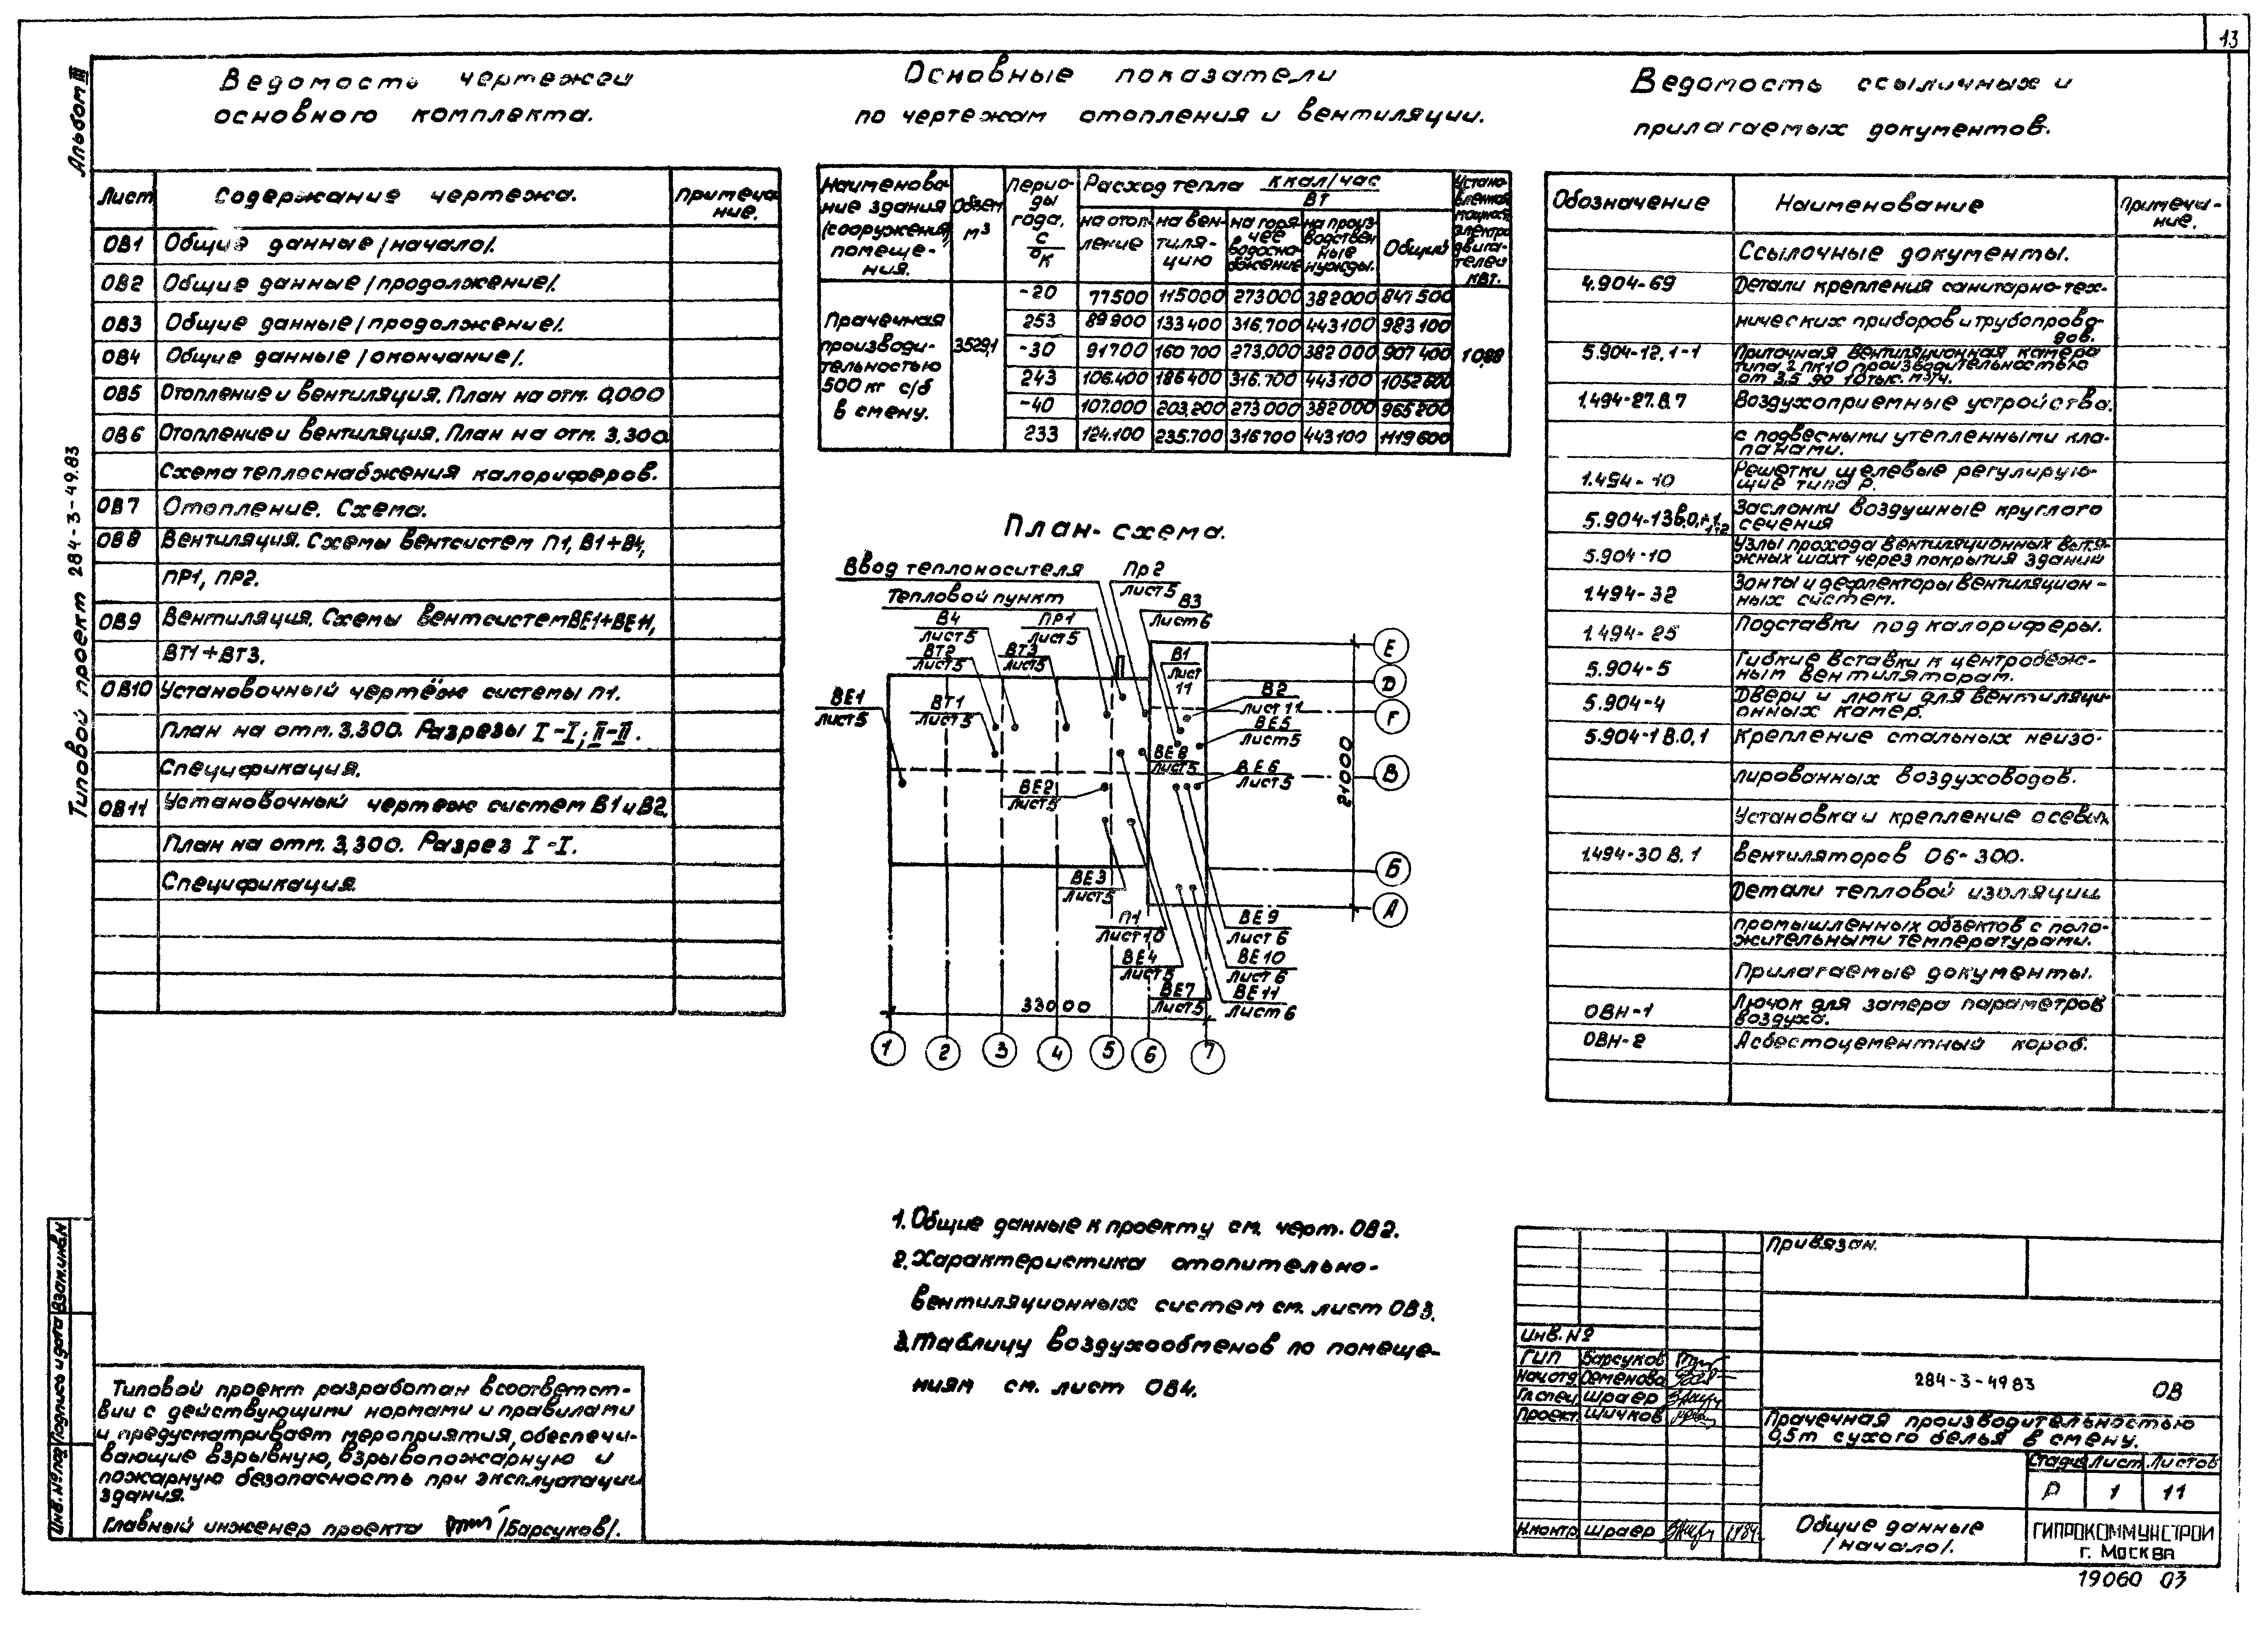 13
Альбом III
Типовой проект 284-3-49.83
Ведомость чертежей
основного комплекта.
Лист Содержание чертежа. Примеча-
ние.
ОВ1 Общие данные /начало/.
ОВ2 Общие данные /продолжение/.
ОВ3 Общие данные /продолжение/.
ОВ4 Общие данные /окончание/.
ОВ5 Отопление и вентиляция. План на отм. 0,000
ОВ6 Отопление и вентиляция. План на отм. 3.300
Схема теплоснабжения калориферов.
ОВ7 Отопление. Схема.
ОВ8 Вентиляция. Схемы вентсистем П1, В1÷В4,
ПР1, ПР2.
ОВ9 Вентиляция. Схемы вентсистем ВЕ1÷ВЕ11,
ВТ1÷ВТ3.
ОВ10 Установочный чертёж системы П1.
План на отм. 3.300. Разрезы I-I; II-II.
Спецификация.
ОВ11 Установочный чертеж систем В1 и В2.
План на отм. 3,300. Разрез I-I.
Спецификация.
Основные показатели
по чертежам отопления и вентиляции.
Наименова-
ние здания
(сооружения),
помеще-
ния.
Объем
м³
Перио-
ды
года.
С
°К
Расход тепла ккал/час
ВТ
на отоп-
ление
на вен-
тиля-
цию
на горя-
чее
водосна-
бжение
на произ-
водствен
ные
нужды.
Общий
Устано-
вленная
мощная
электро
двига-
телей
квт.
Прачечная
производи-
тельностью
500 кг с/б
в смену.
3529,1
-20 77500 115000 273000 382000 847500
253 89900 133400 316.700 443100 983100
-30 91700 160700 273,000 382000 907400
243 106.400 186400 316.700 443100 1052600
-40 107.000 203,200 273000 382000 965200
233 124.100 235.700 316700 443100 1119600
План-схема.
Ввод теплоносителя
Тепловой пункт
Пр2
Лист5
В3
Лист6
В4
Лист5
ПР1
Лист5
ВТ2
Лист5
ВТ3
Лист5
В1
Лист
11
ВЕ1
Лист5
ВТ1
Лист5
В2
Лист 11
ВЕ5
Лист5
ВЕ8
Лист5
ВЕ6
Лист5
ВЕ2
Лист5
ВЕ3
Лист5
П1
Лист10
ВЕ9
Лист 6
ВЕ4
Лист5
ВЕ10
Лист 6
ВЕ7
Лист5
ВЕ11
Лист 6
Е
D
Г
В
Б
А
21000
33000
1 2 3 4 5 6 7
1. Общие данные к проекту см. черт. ОВ2.
2. Характеристика отопительно-
вентиляционных систем см. лист ОВ3.
3. Таблицу воздухообменов по помеще-
ниям см. лист ОВ4.
Ведомость ссылочных и
прилагаемых документов.
Обозначение Наименование Примеча-
ние.
Ссылочные документы.
4.904-69 Детали крепления санитарно-тех-
нических приборов и трубопрово-
дов.
5.904-12,1-1 Приточная вентиляционная камера
типа 2 ПК10 производительностью
от 3,5 до 10 тыс. м³/ч.
1.494-27.В.7 Воздухоприемные устройства.
с подвесными утепленными кла-
панами.
1.494-10 Решетки щелевые регулирую-
щие типа Р.
Заслонки воздушные круглого
сечения
5.904-10 Узлы прохода вентиляционных вытя-
жных шахт через покрытия зданий
1.494-32 Зонты и дефлекторы вентиляцион-
ных систем.
1.494-25 Подставки под калориферы.
5.904-5 Гибкие вставки к центробеж-
ным вентиляторам.
5.904-4 Двери и люки для вентиляци-
онных камер.
5.904-1 В.0,1 Крепление стальных неизо-
лированных воздуховодов.
Установка и крепление осевых
1.494-30 В.1 вентиляторов 06-300.
Детали тепловой изоляции
промышленных объектов с поло-
жительными температурами.
Прилагаемые документы.
ОВН-1 Лючок для замера параметров
воздуха.
ОВН-2 Асбестоцементный короб.
Типовой проект разработан в соответст-
вии с действующими нормами и правилами
и предусматривает мероприятия, обеспечи-
вающие взрывную, взрывопожарную и
пожарную безопасность при эксплуатации
здания.
Главный инженер проекта /Барсуков/.
Взам.инв.N
Подпись и дата
Инв.№ под
Привязан.
Инв. №
ГИП Барсуков
Нач.отд Семенова
Гл.спец Шраер
Проект. Шичков
Н.контр Шраер
284-3-4983 ОВ
Прачечная производительностью
0,5т сухого белья в смену.
Стадия Лист Листов
Р 1 11
Общие данные
/начало/.
ГИПРОКОММУНСТРОЙ
г. Москва
19060 03